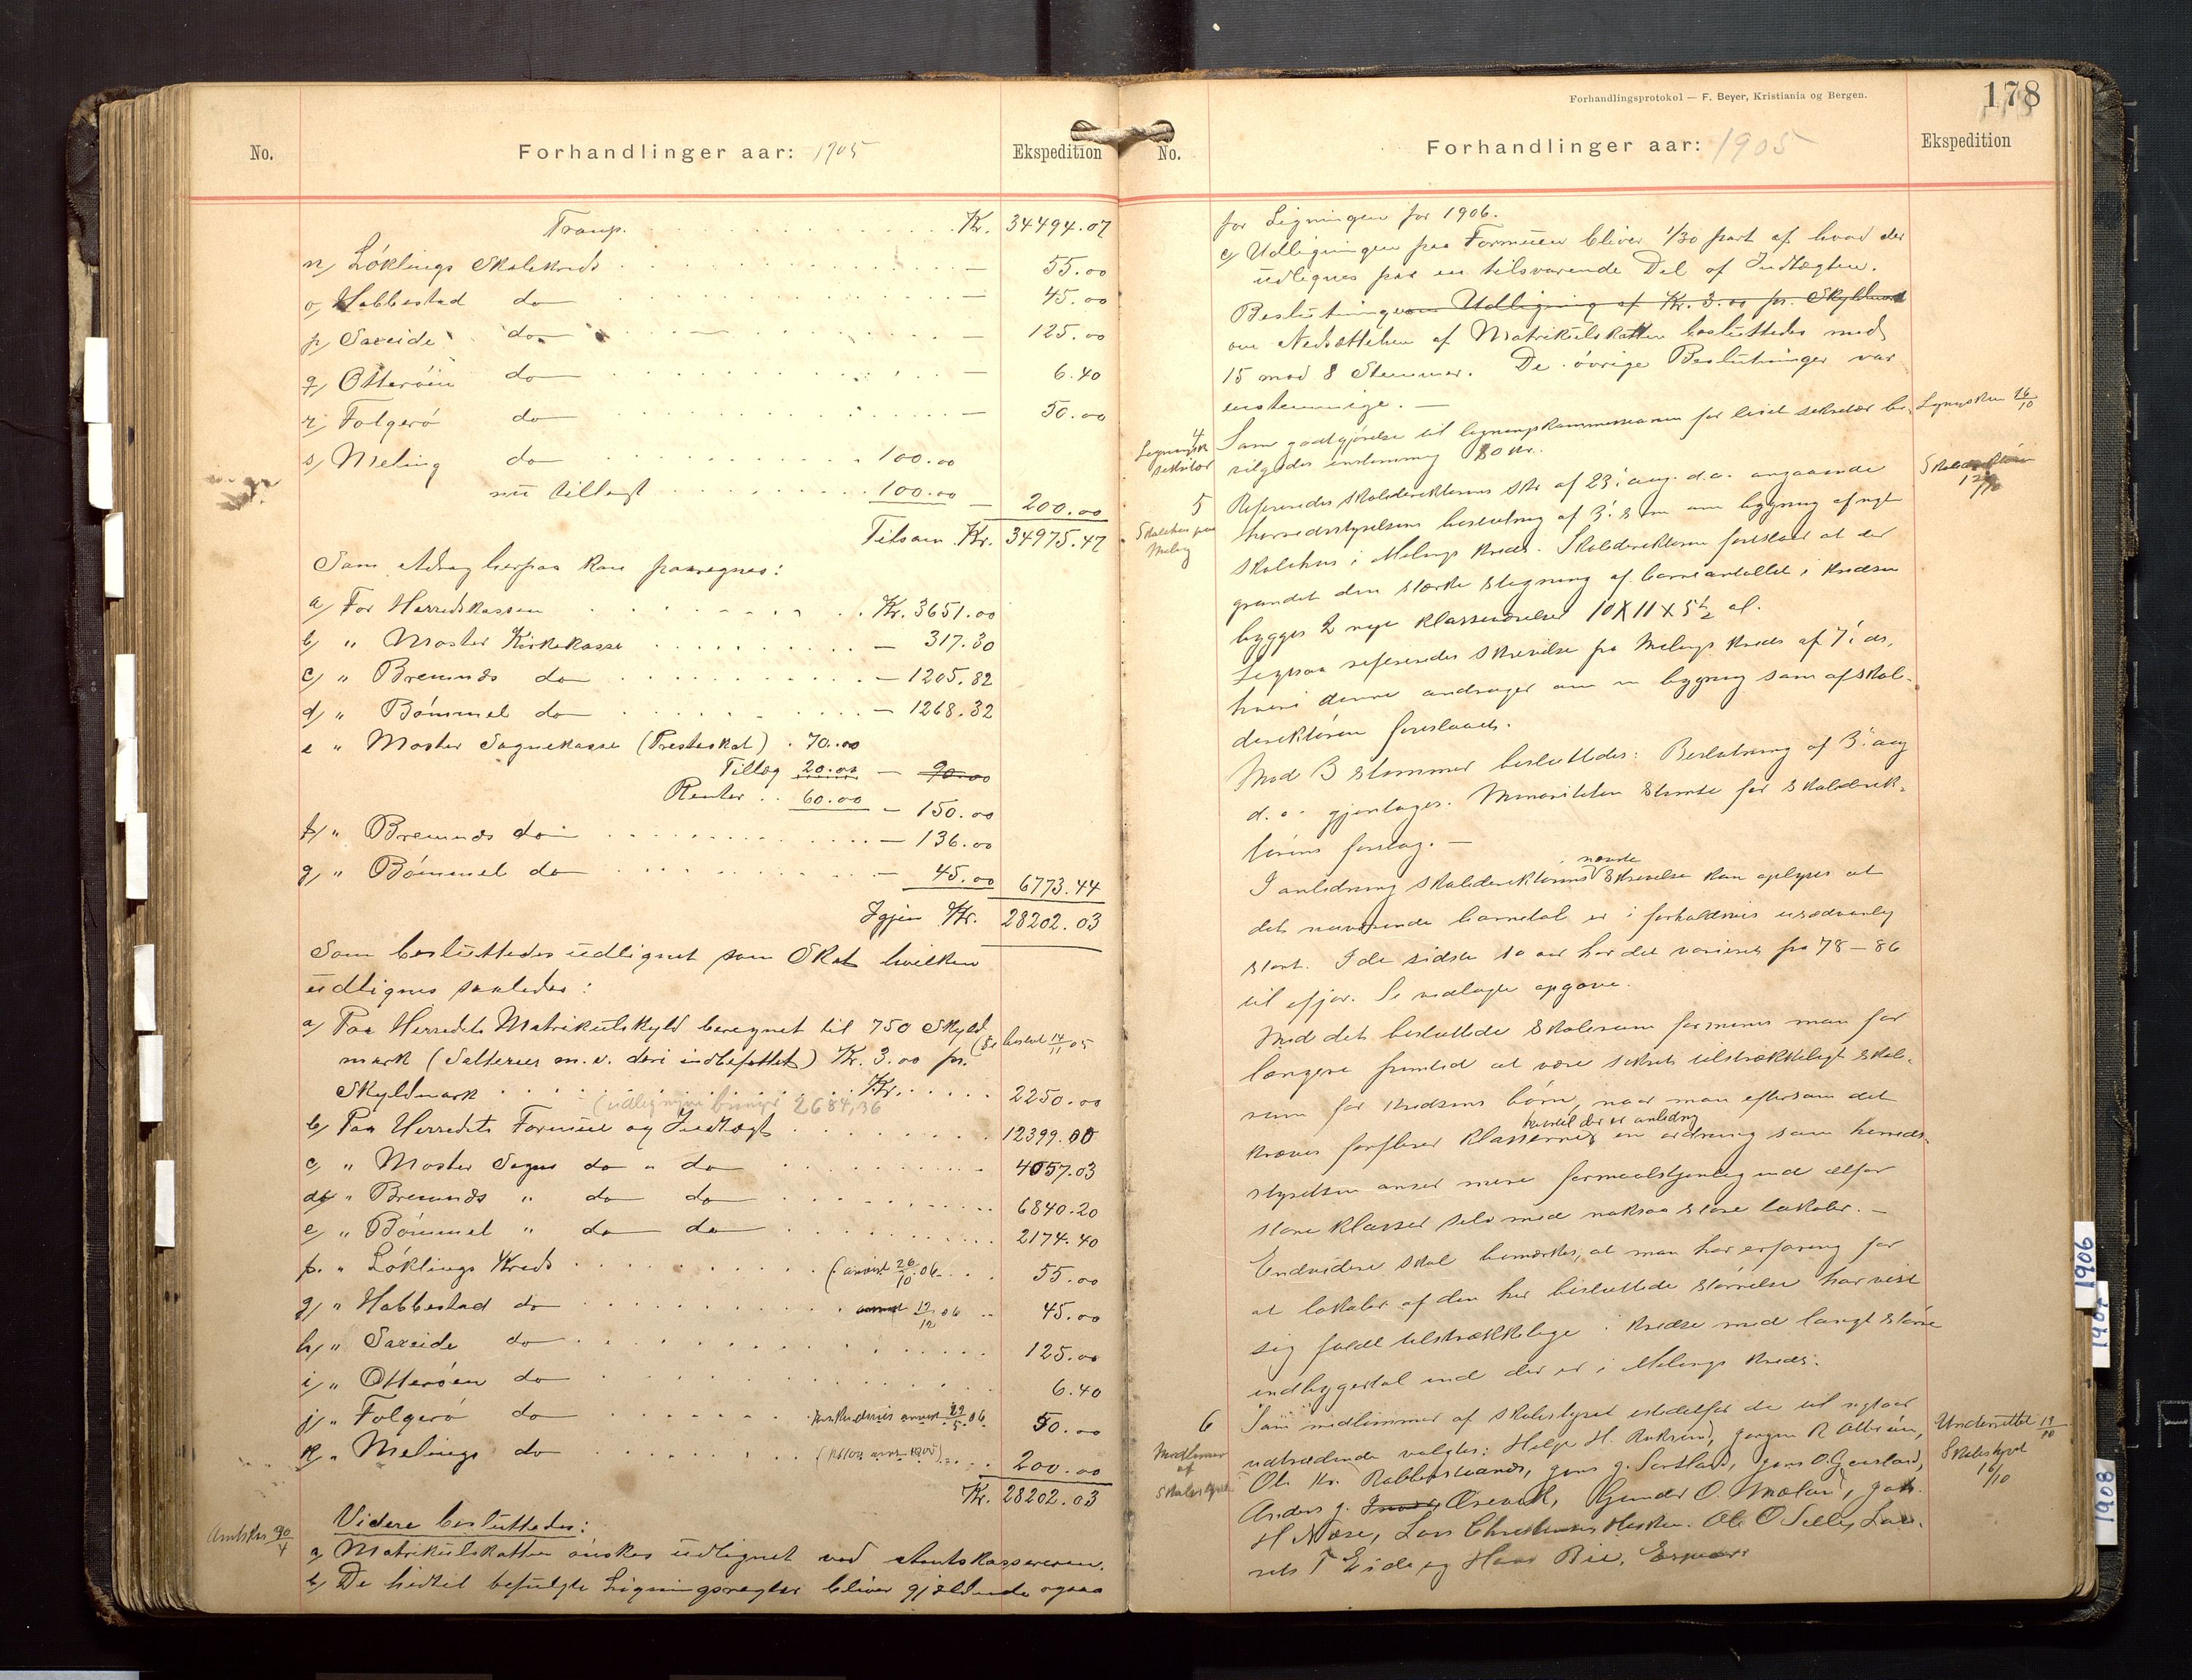 No.
Forhandlinger aar: 1905
Ekspedition
Transp. Kr. 34494.07
n/ Löklings Skolekreds — 55.00
o/ Habbestad do — 45.00
p/ Saxeide do — 125.00
q/ Otteröien do — 6.40
r/ Folgerö do — 50.00
s/ Meling do 100.00
nu tillagt 100.00 — 200.00
Tilsam. Kr. 34975.47
Som Afdrag herpaa kan paaregnes:
a/ For Herredskassen Kr. 3651.00
b/ " Moster Kirkekasse — 317.30
c/ " Bremnæs do — 1205.82
d/ " Bömmel do — 1268.32
e " Moster Sognekasse (Presteskat) 70.00
Tillæg 20.00 — 90.00
Renter 60.00 — 150.00
f/ " Bremnæs do — 136.00
g/ " Bömmel do — 45.00 6773.44
Igjen Kr. 28202.03
Som besluttedes udlignet som Skat hvilken
udlignes saaledes:
a/ Paa Herredets Matrikulskyld beregnet til 750 Skyld
mark (Salterier m.v. deri indbefattet) Kr. 3.00 pr. (Se beslut 14/11 05
Skyldmark Kr. 2250.00
(udligningen bringer 2684,36
b/ Paa Herredets Formue og Indtægt 12399.00
c/ " Moster Sogns do " do 4057.03
d/ " Bremnæs " do do 6840.20
e/ " Bömmel " do do 2174.40
f. " Löklings Kreds (anvist 26/10 06 55.00
g/ " Habbestad do anvist 12/12 06 45.00
h/ " Saxeide do 125.00
i/ " Otteröen do 6.40
j/ " Folgerö do anvist 29/5 06 50.00
k/ " Melings do 200.00
Kr. 28202.03
Videre besluttedes:
Amtskas 30/4
a/ Matrikulskatten önskes udlignet ved Amtskassereren.
b/ De hidtil befulgte Ligningsregler bliver gjældende ogsaa
Forhandlingsprotokol — F. Beyer, Kristiania og Bergen.
178
No.
Forhandlinger aar: 1905
Ekspedition
for Ligningen for 1906.
c/ Udligningen paa Formuen bliver 1/30 part af hvad der
udlignes paa en tilsvarende Del af Indtægten.
Beslutningen om Udligning af Kr. 3.00 pr. Skyldmark
om Nedsættelsen af Matrikulskatten besluttedes med
15 mod 8 Stemmer. De övrige Beslutninger var
enstemmige. —
4
Ligningsk sekretær
Som godtgjörelse til ligningskommissionen for leiet sekretær be-
vilgedes enstemmig 80 Kr.
Lignigskom 16/10
5
Skolehus paa Meling
Refereredes skoledirektörens skr af 23' aug. d.a. angaaende
herredsstyrelsens beslutning af 3' s m om bygning af nyt
skolehus i Melings kreds. Skoledirektören foreslaar at der
grundet den stærke stigning af barneantallet i kredsen
bygges 2 nye klasseværelser 10 X 11 X 5 1/2 al.
Ligesaa refereredes skrivelse fra Melings kreds af 7' ds,
hvori denne andrager om en bygning som af skole-
direktören foreslaaet.
Mod 3 stemmer besluttedes: Beslutning af 3' aug
d.a. gjentages. Minoriteten stemte for skoledirek-
törens forslag. —
I anledning skoledirektörens nævnte skrivelse kan oplyses at
det nuværende barnetal er i forholdsvis usædvanlig
stort. I de sidste 10 aar har det varieret fra 78 — 86
til ifjor. Se vedlagte opgave.
Med det besluttede skolerum formenes man for
længere fremtid at være sikret tilstrækkeligt skole-
rum for kredsens börn, naar man eftersom det
kræves forflerer klasserne, hvortil der er anledning en ordning som herreds-
styrelsen anser mere formaalstjenlig end altfor
store klasser selv med noksaa store lokaler. —
Endvidere skal bemærkes, at man har erfaring for
at lokaler af den her besluttede störrelse har vist
sig fuldt tilstrækkelige i kredse med langt större
indbyggertal end der er i Melings kreds.
6
Medlemmer af Skolestyret
Som medlemmer af skolestyret istedetfor de til nytaar
udtrædende valgtes: Helge H.
Anders J. H Næse, Ole O Selle,
T Eide og Hans
Underrettet 19/10
Skolestyret 16/10
1906
1907
1908